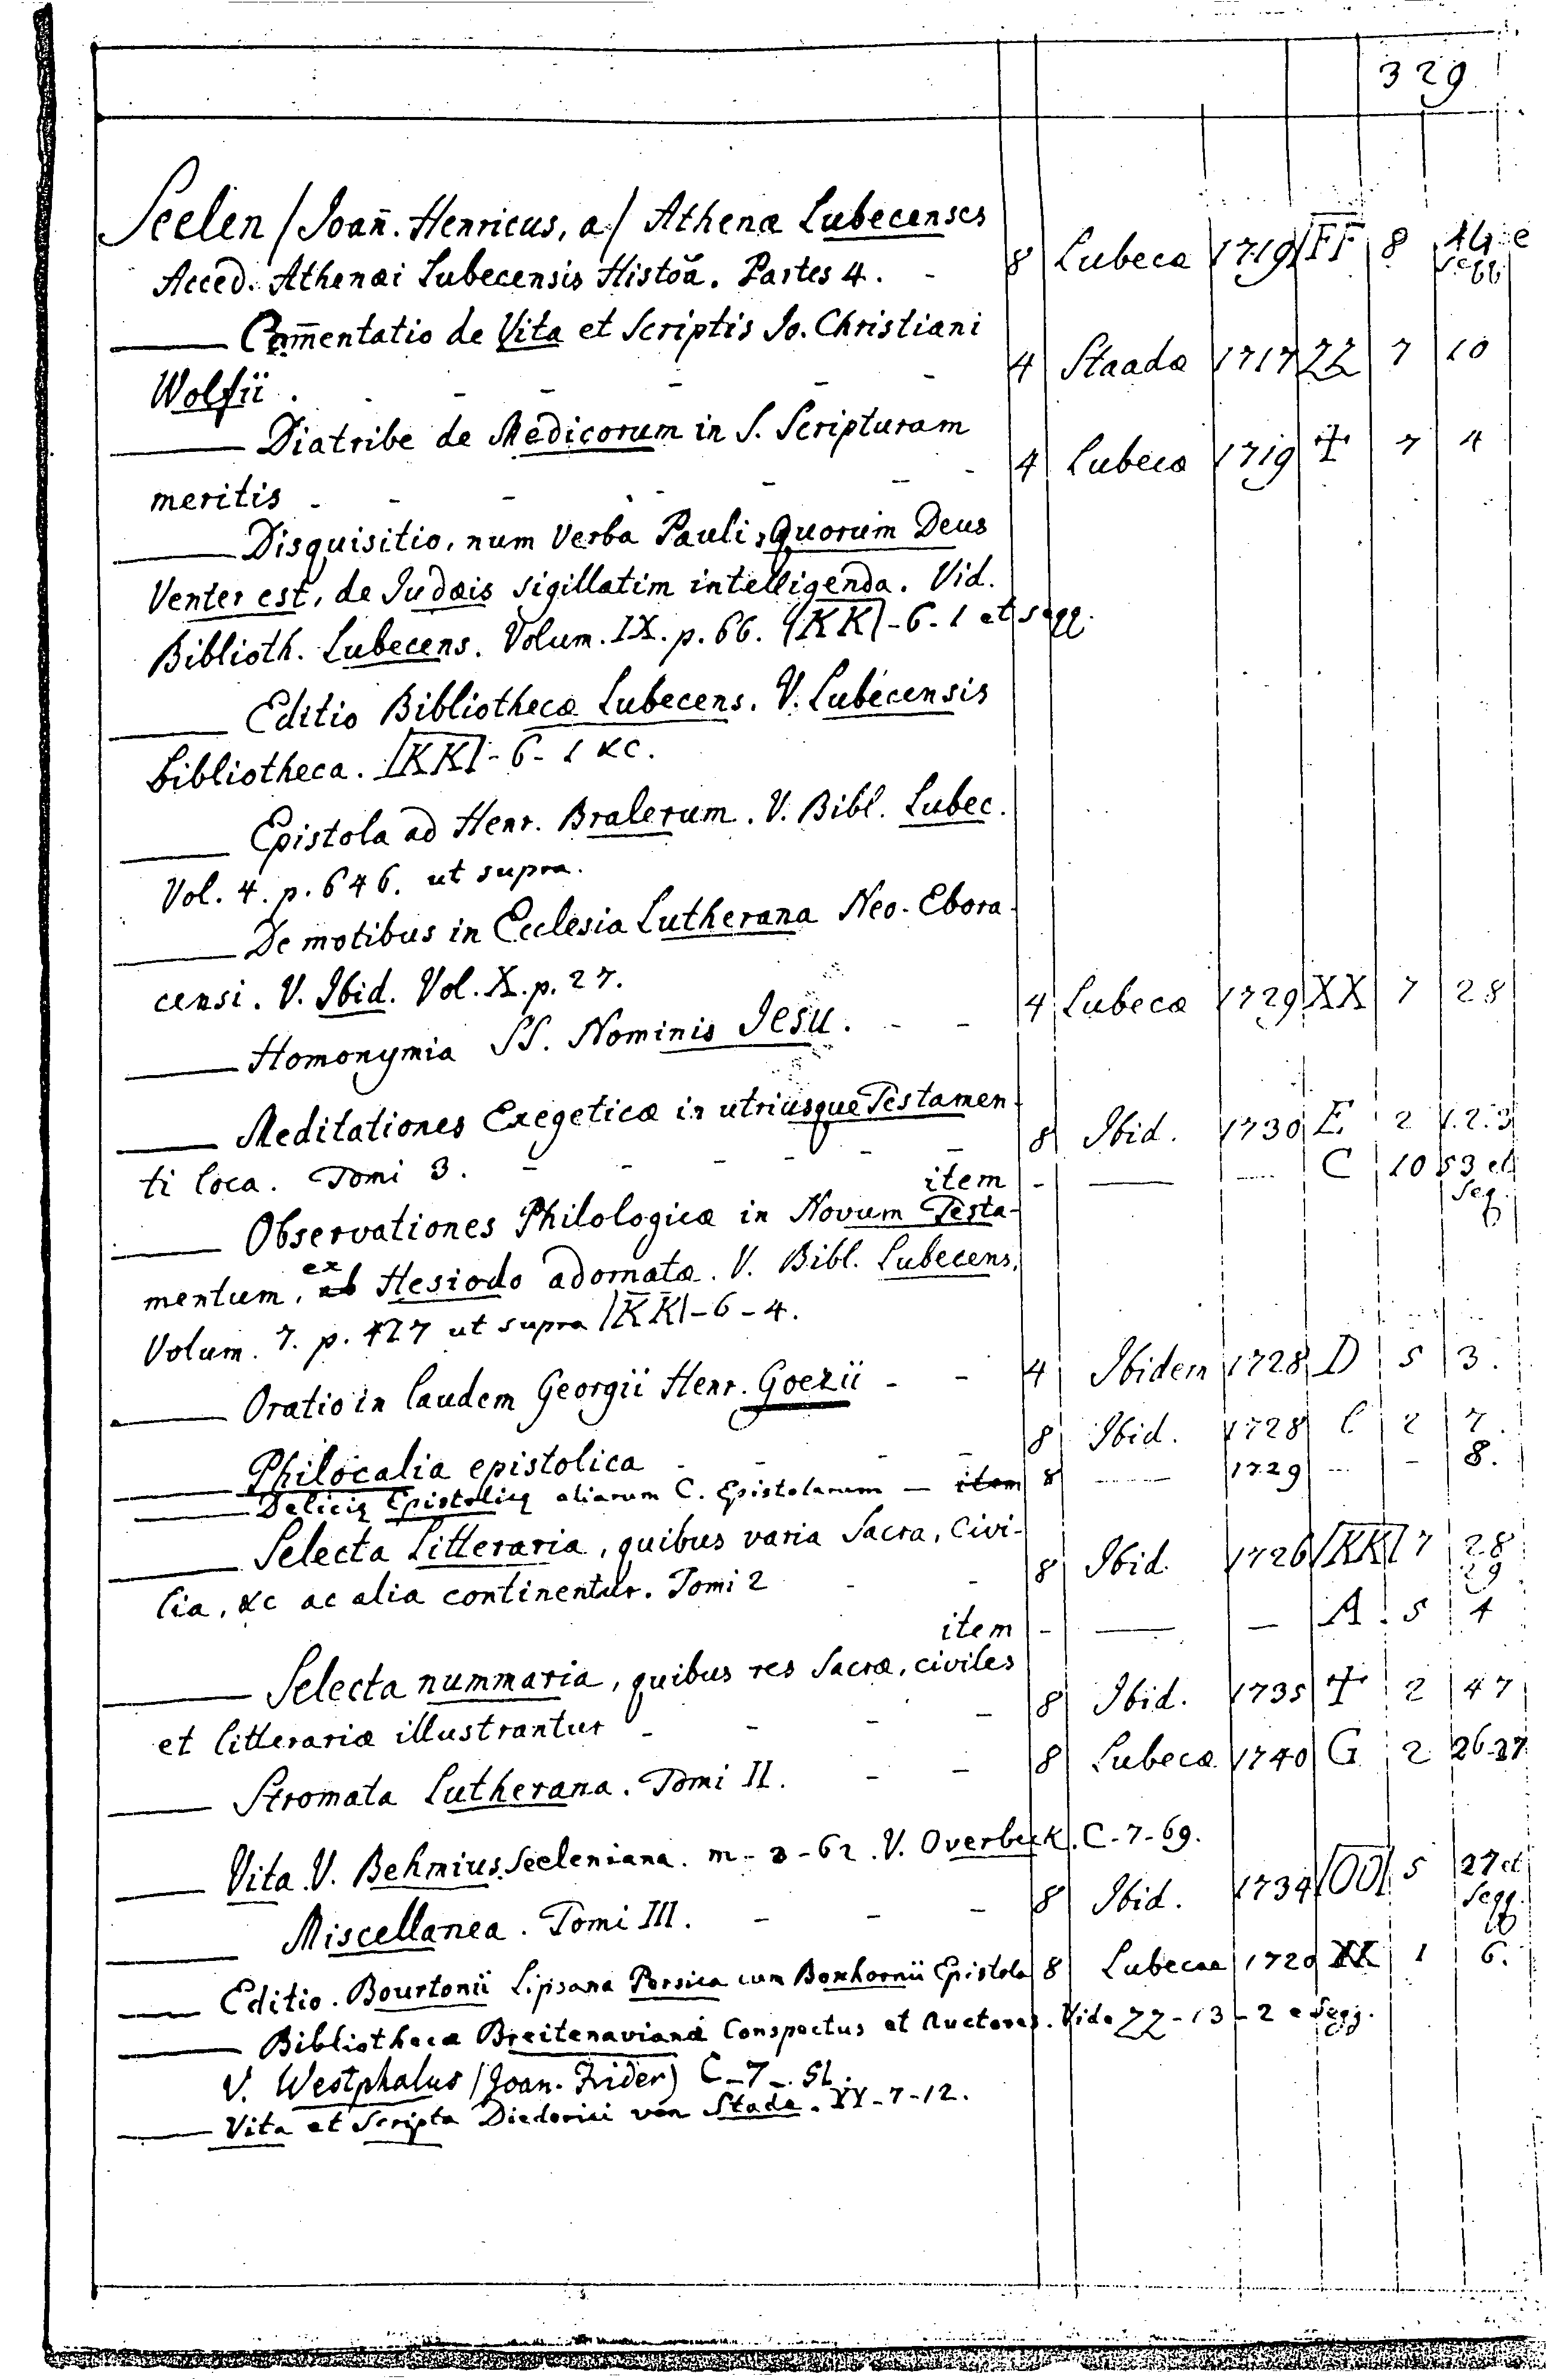 329
Seelen /Joañ. Henricus, a/ Athenæ Lubecenses
Acced. Athenæi Lubecensis Histoã. Partes 4. - 8 Lubecæ 1719 |FF| 8
—— Com̃entatio de Vita et Scriptis Jo. Christiani
Wolfii . - - - - - 4 Staadæ 1717 ZZ 7 10
—— Diatribe de Medicorum in S. Scripturam
meritis - - - - - - 4 Lubecæ 1719 + 7 4
—— Disquisitio, num Verba Pauli, Quorum Deus
Venter est, de Judæis sigillatim intelligenda. Vid.
Biblioth. Lubecens. Volum. IX. p. 66. |KK|-6-1 et seqq.
—— Editio Bibliothecæ Lubecens. V. Lubecensis
bibliotheca. |KK|-6-1 &c.
—— Epistola ad Henr. Bralerum. V. Bibl. Lubec.
Vol. 4. p. 646. ut supra.
—— De motibus in Ecclesia Lutherana Neo-Ebora-
censi. V. Ibid. Vol. X. p. 27.
—— Homonymia SS. Nominis Jesu. - - 4 Lubecæ 1729 XX 7 28
—— Meditationes Exegeticæ in utriusque Testamen-
ti loca. Tomi 3. - - - - - - 8 Ibid. 1730 E 2 1.2.3
item - —— —— C 10 53 et seq.
—— Observationes Philologicæ in Novum Testa-
mentum, ex Hesiodo adornatæ. V. Bibl. Lubecens.
Volum. 7. p. 427 ut supra |KK|-6-4.
—— Oratio in laudem Georgii Henr. Goezii - - 4 Ibidem 1728 D 5 3.
—— Philocalia epistolica - - - - 8 Ibid. 1728 C 2 7.
—— Deliciæ Epistolicæ aliarum C. Epistolarum — item 8 —— 1729 — - 8.
—— Selecta Litteraria, quibus varia Sacra, Civi-
lia, &c ac alia continentur. Tomi 2 - - 8 Ibid. 1726 |KK| 7 28 29
item - —— — A 5 4
—— Selecta nummaria, quibus res Sacræ, civiles
et litterariæ illustrantur - - - - 8 Ibid. 1735 + 2 47
—— Stromata Lutherana. Tomi II. - - 8 Lubecæ 1740 G 2 26-27
—— Vita. V. Behmius Seeleniana. m-2-62. V. Overbeck. C-7-69.
—— Miscellanea. Tomi III. - - - 8 Ibid. 1734 |OO| 5 27 et seqq.
—— Editio. Bourtonii Lipsana Persica cum Boxhornii Epistola 8 Lubecae 1720 XX 1 6.
—— Bibliothecæ Breitenavianæ Conspectus et Auctores. Vide ZZ-13-2 e seqq.
V. Westphalus (Joan. Frider) C-7-51.
—— Vita et Scripta Diederici von Stade. YY-7-12.